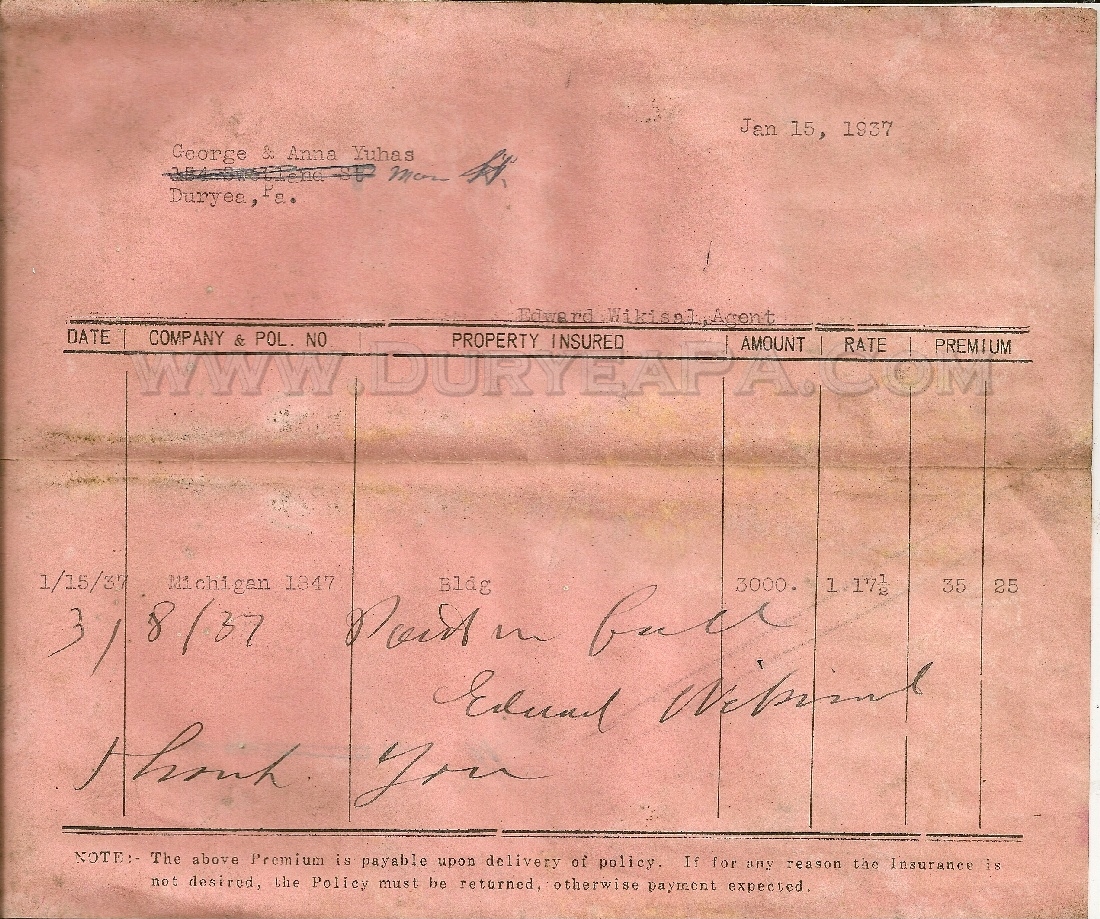 Jan 15, 1937
George & Anna Yuhas
154 Swetland St Main St.
Duryea, Pa.
Edward Wikisal, Agent
DATE COMPANY & POL. NO PROPERTY INSURED AMOUNT RATE PREMIUM
WWW.DURYEAPA.COM
1/15/37 Michigan 1847 Bldg 3000. 1.17½ 35 25
3/8/37 Paid in full
Edward Wikisal
Thank You
NOTE:- The above Premium is payable upon delivery of policy. If for any reason the Insurance is
not desired, the Policy must be returned, otherwise payment expected.